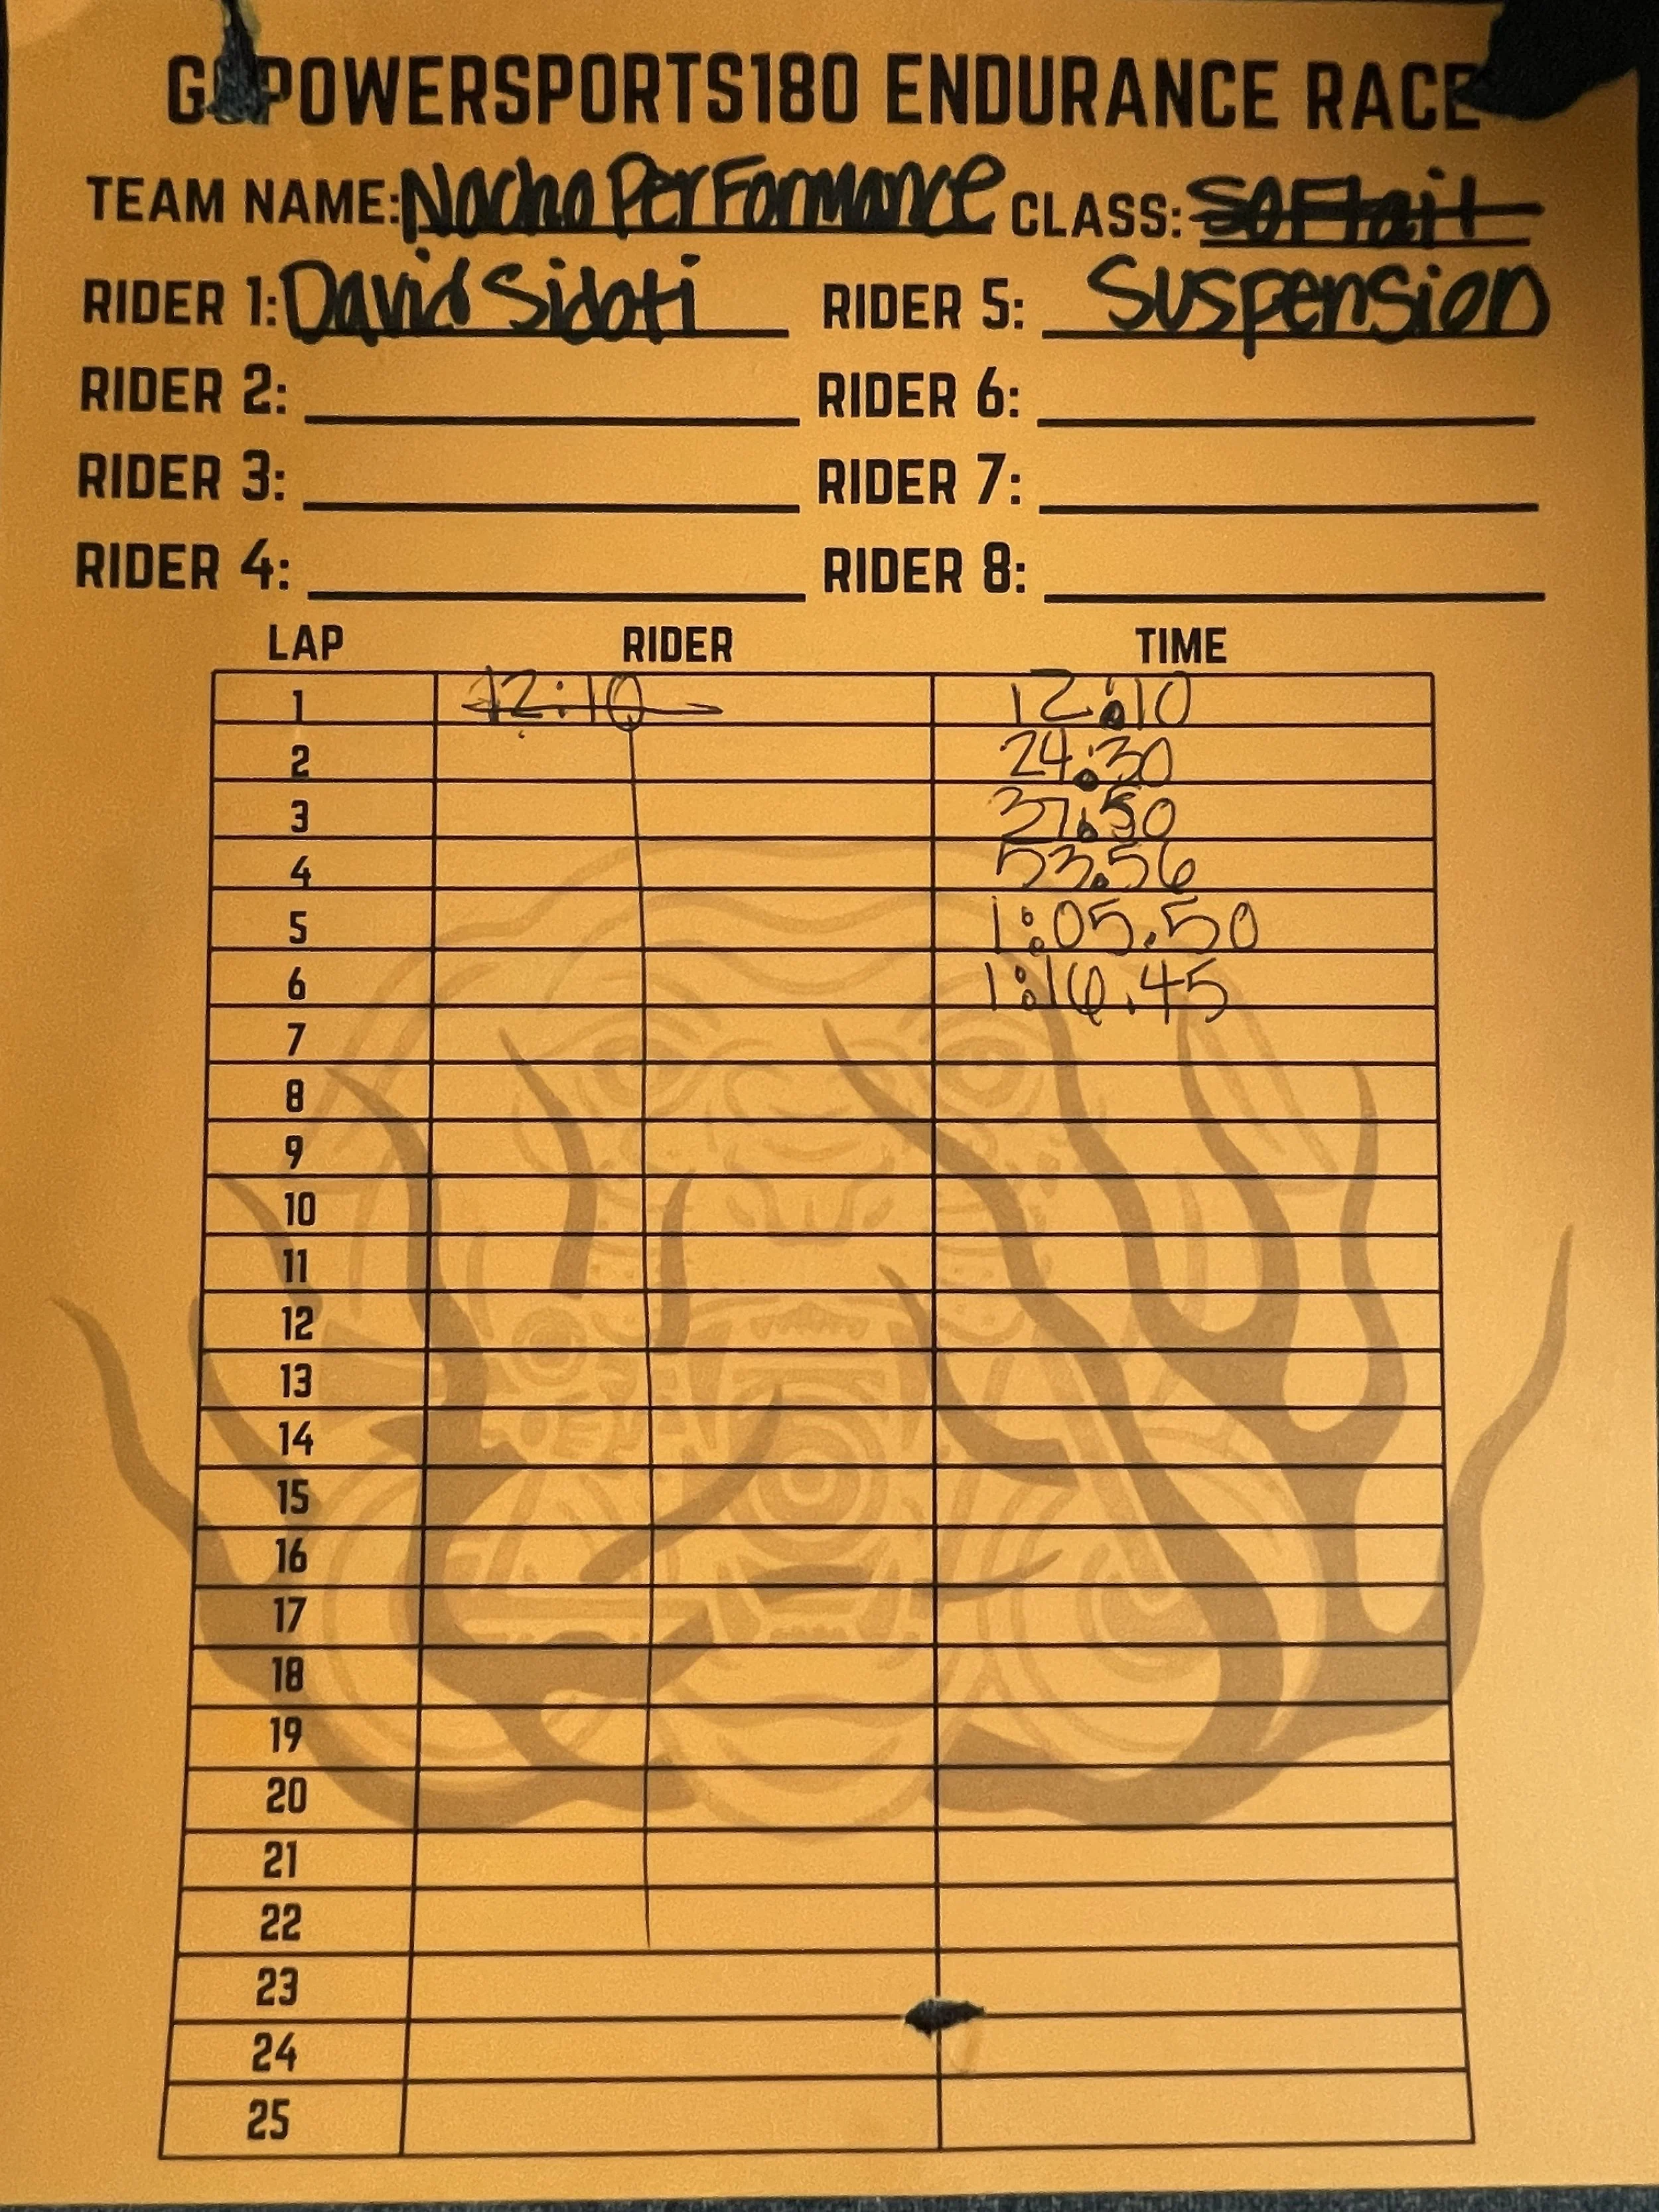 POWERSPORTS180 ENDURANCE RACE
TEAM NAME: Nacho PerFormance CLASS: SoFtail
RIDER 1: David Sidoti RIDER 5: Suspension
RIDER 2: RIDER 6:
RIDER 3: RIDER 7:
RIDER 4: RIDER 8:
LAP RIDER TIME
1 12:10 12:10
2 24:30
3 37:50
4 53.56
5 1:05.50
6 1:16.45
7
8
9
10
11
12
13
14
15
16
17
18
19
20
21
22
23
24
25